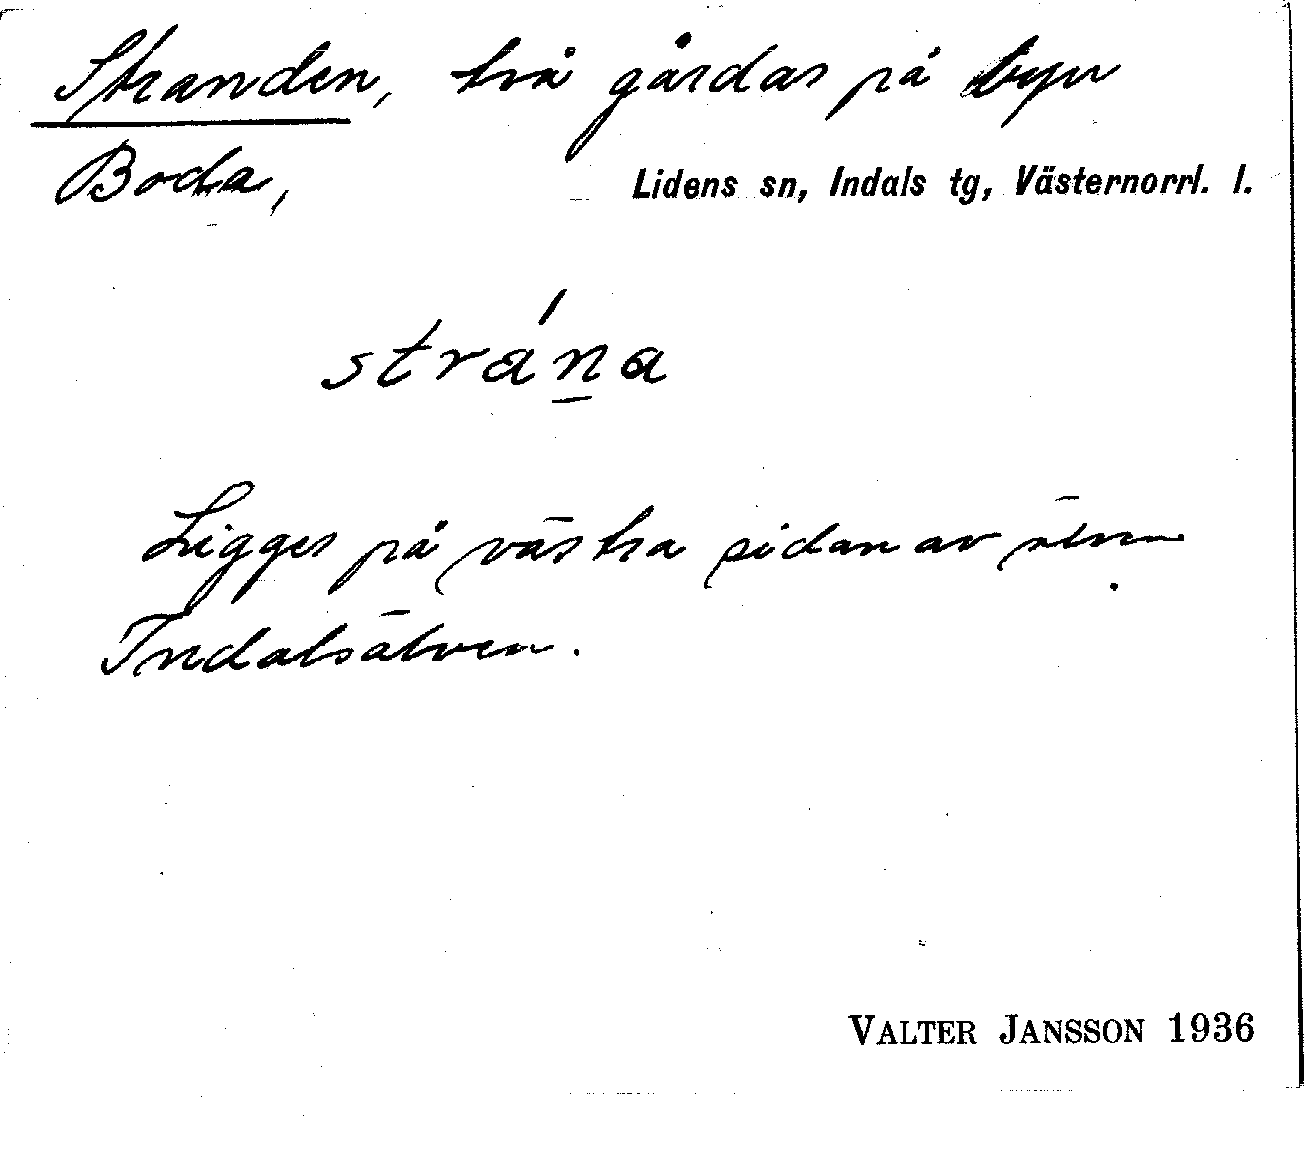 Stranden, två gårdar på byn
Boda, Lidens sn, Indals tg, Västernorrl. l.
strána
Ligger på västra sidan av
Indalsälven.
VALTER JANSSON 1936